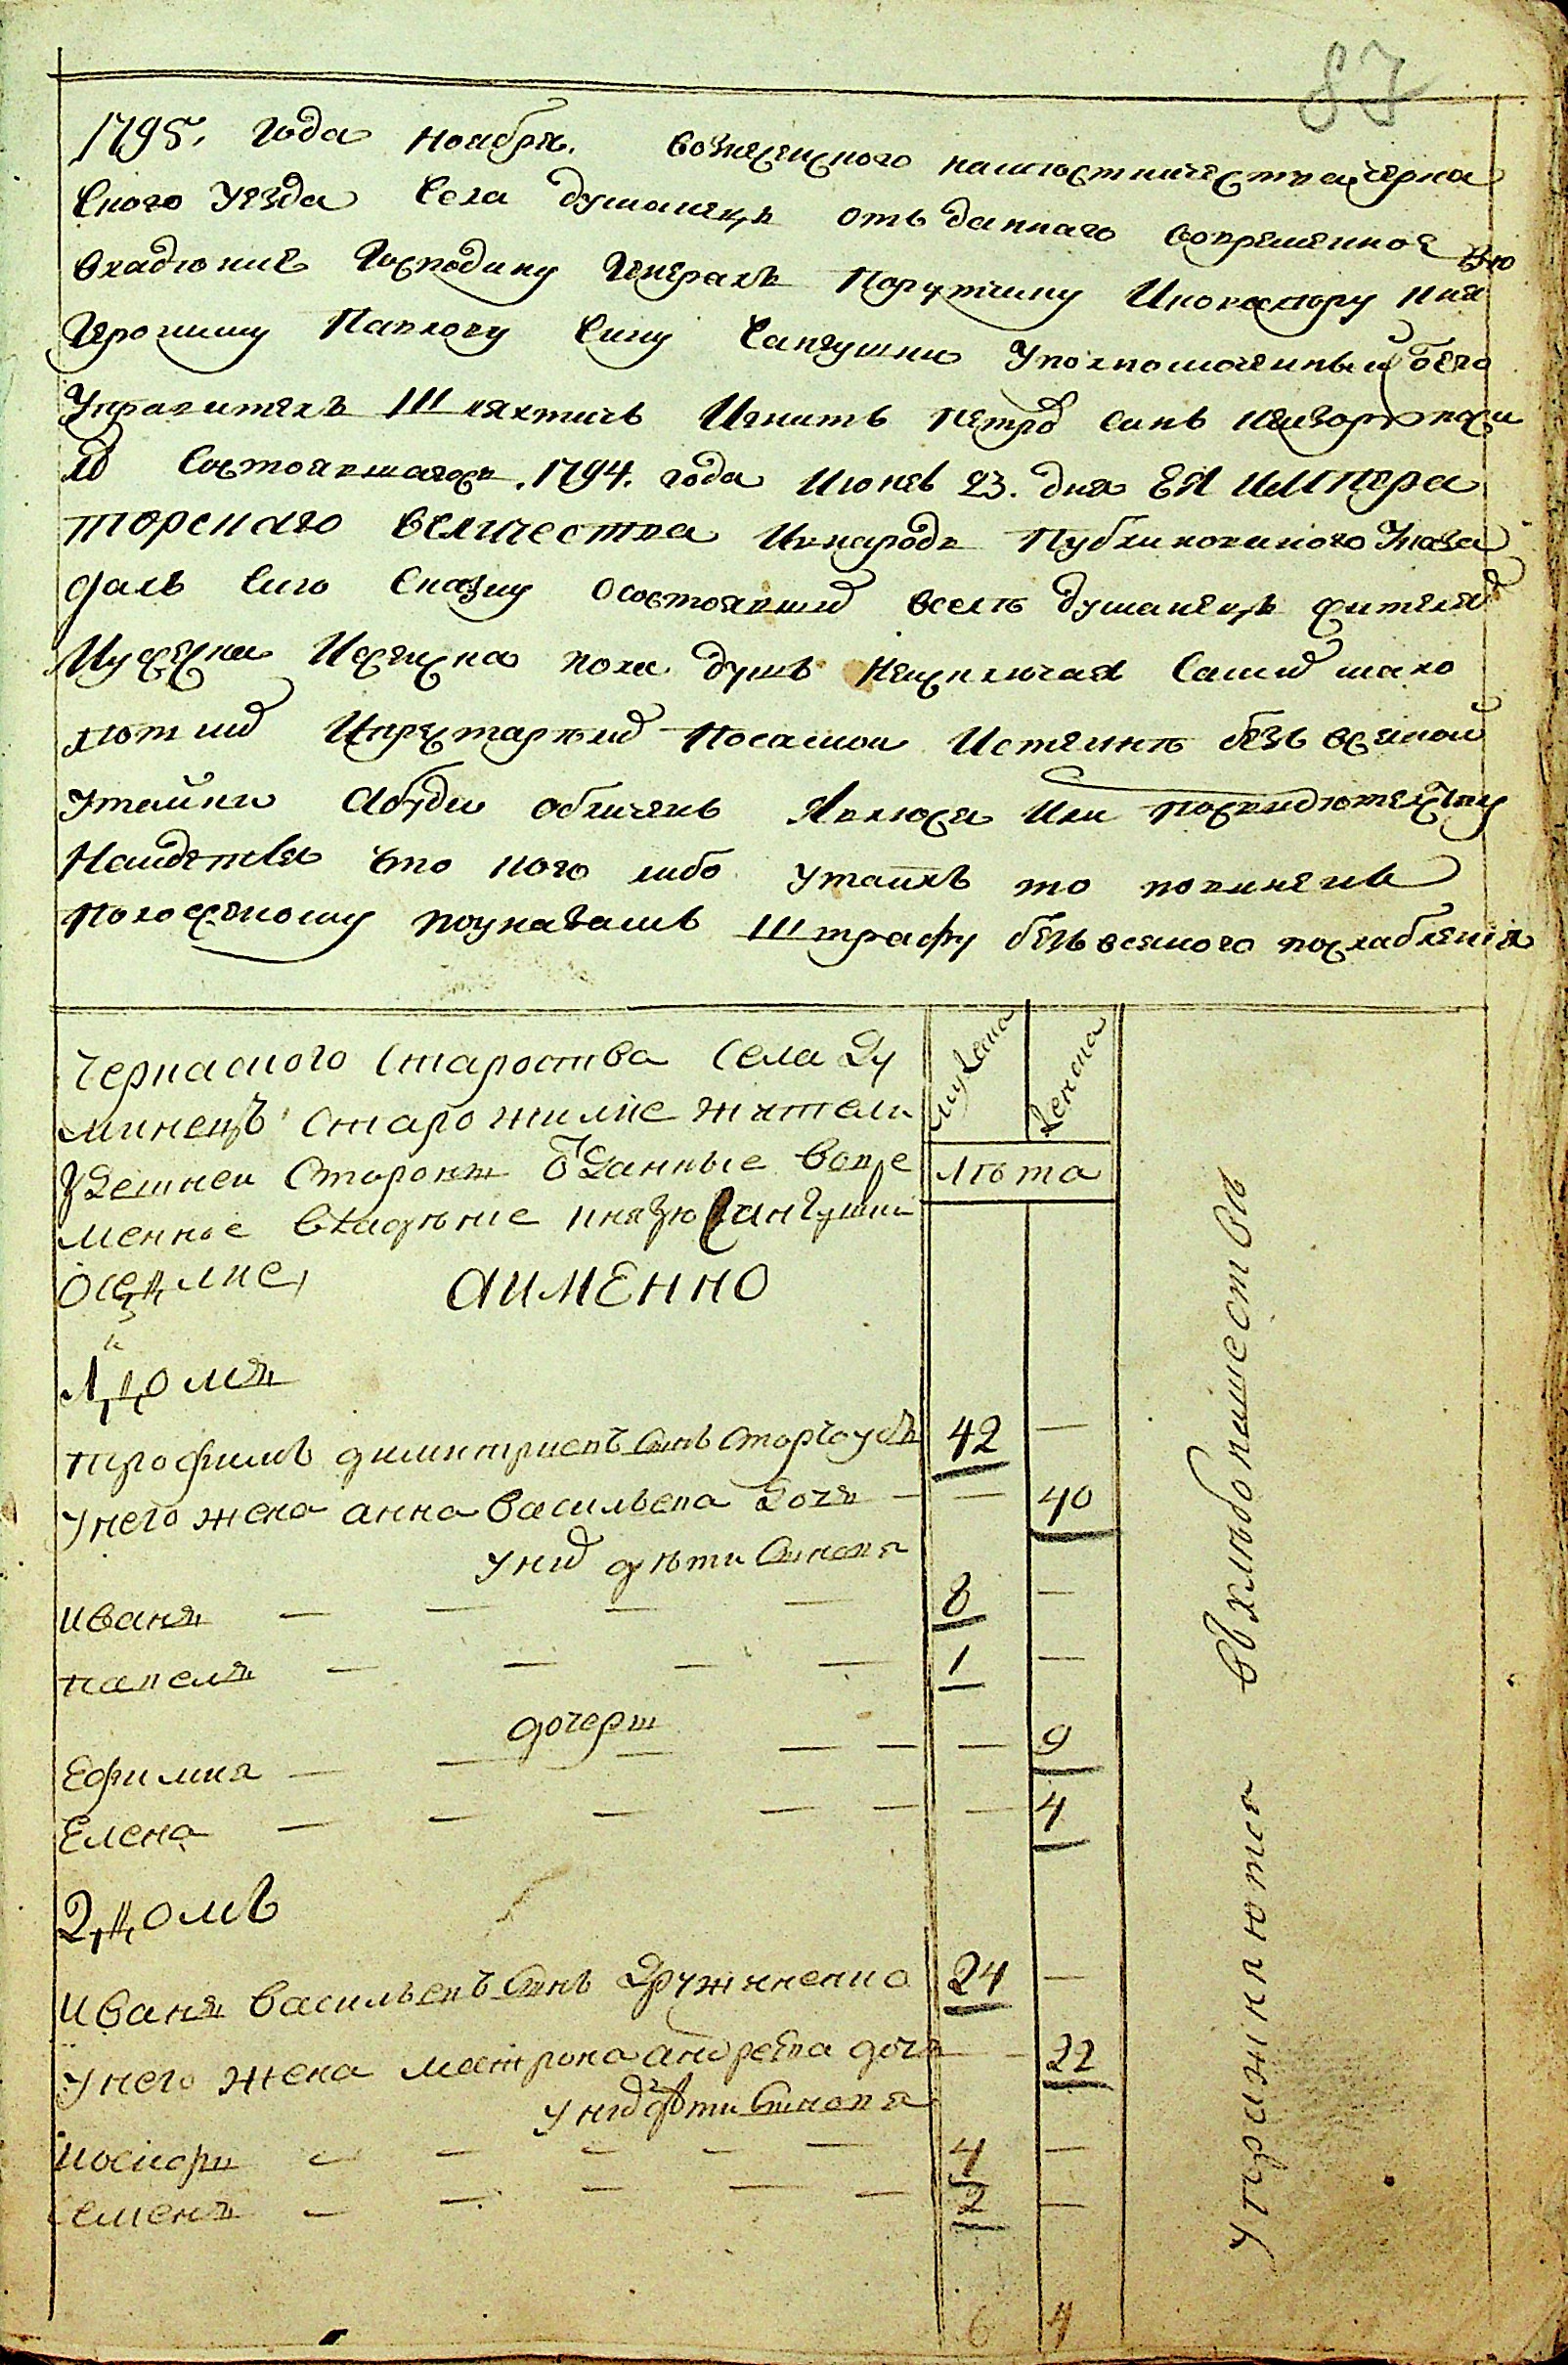 87
1795. года ноября. вознесенского наместничества черка
ского уезда села думанецъ отъ даннаго вовременное
владение господину генералъ порутчику икавалеру кня
зю
Ерониму павлову сину сангушки уполномоченный отъ его
управитель Шляхтичъ игнитъ петровъ синъ
состоявшагось. 1794. года июня 23. дня ЕЯ импера
торскаго величества ивнароде публикованого указа
далъ сию сказку осостоящих вселе думанецъ жителях
мужеска иженска пола душъ неисключая самих мало
летних ипрестарелих посамой истинне безъ всякой
утайки абуди обличенъ явлюся или посвидетелству
найдется что кого либо утаилъ то повиненъ
положеному поуказамъ Штрафу безъ всякого послабления
Черкаского староства села Ду
минецъ старожилие жители
здешнеи стороне отданные вовре
менное владение князю сангушки
оседлие, аименно
мужеска
женска
лета
1,й домъ
трофимъ димитриевъ синъ сторчоусъ 42 —
унего жена анна васильева дочь — — 40
уних дети синовя
иванъ — — — — 8 —
павелъ — — — — 1 —
дочери
Ефимия — — — — — — 9
Елена — — — — — — 4
2,домъ
иванъ васильевъ синъ дружиненко 24 —
унего жена матрона андреева дочь — 22
уних дети синовя
иосифъ — — — — — 4 —
семенъ — — — — — 2 —
6 4
упражняются вхлебопашестве